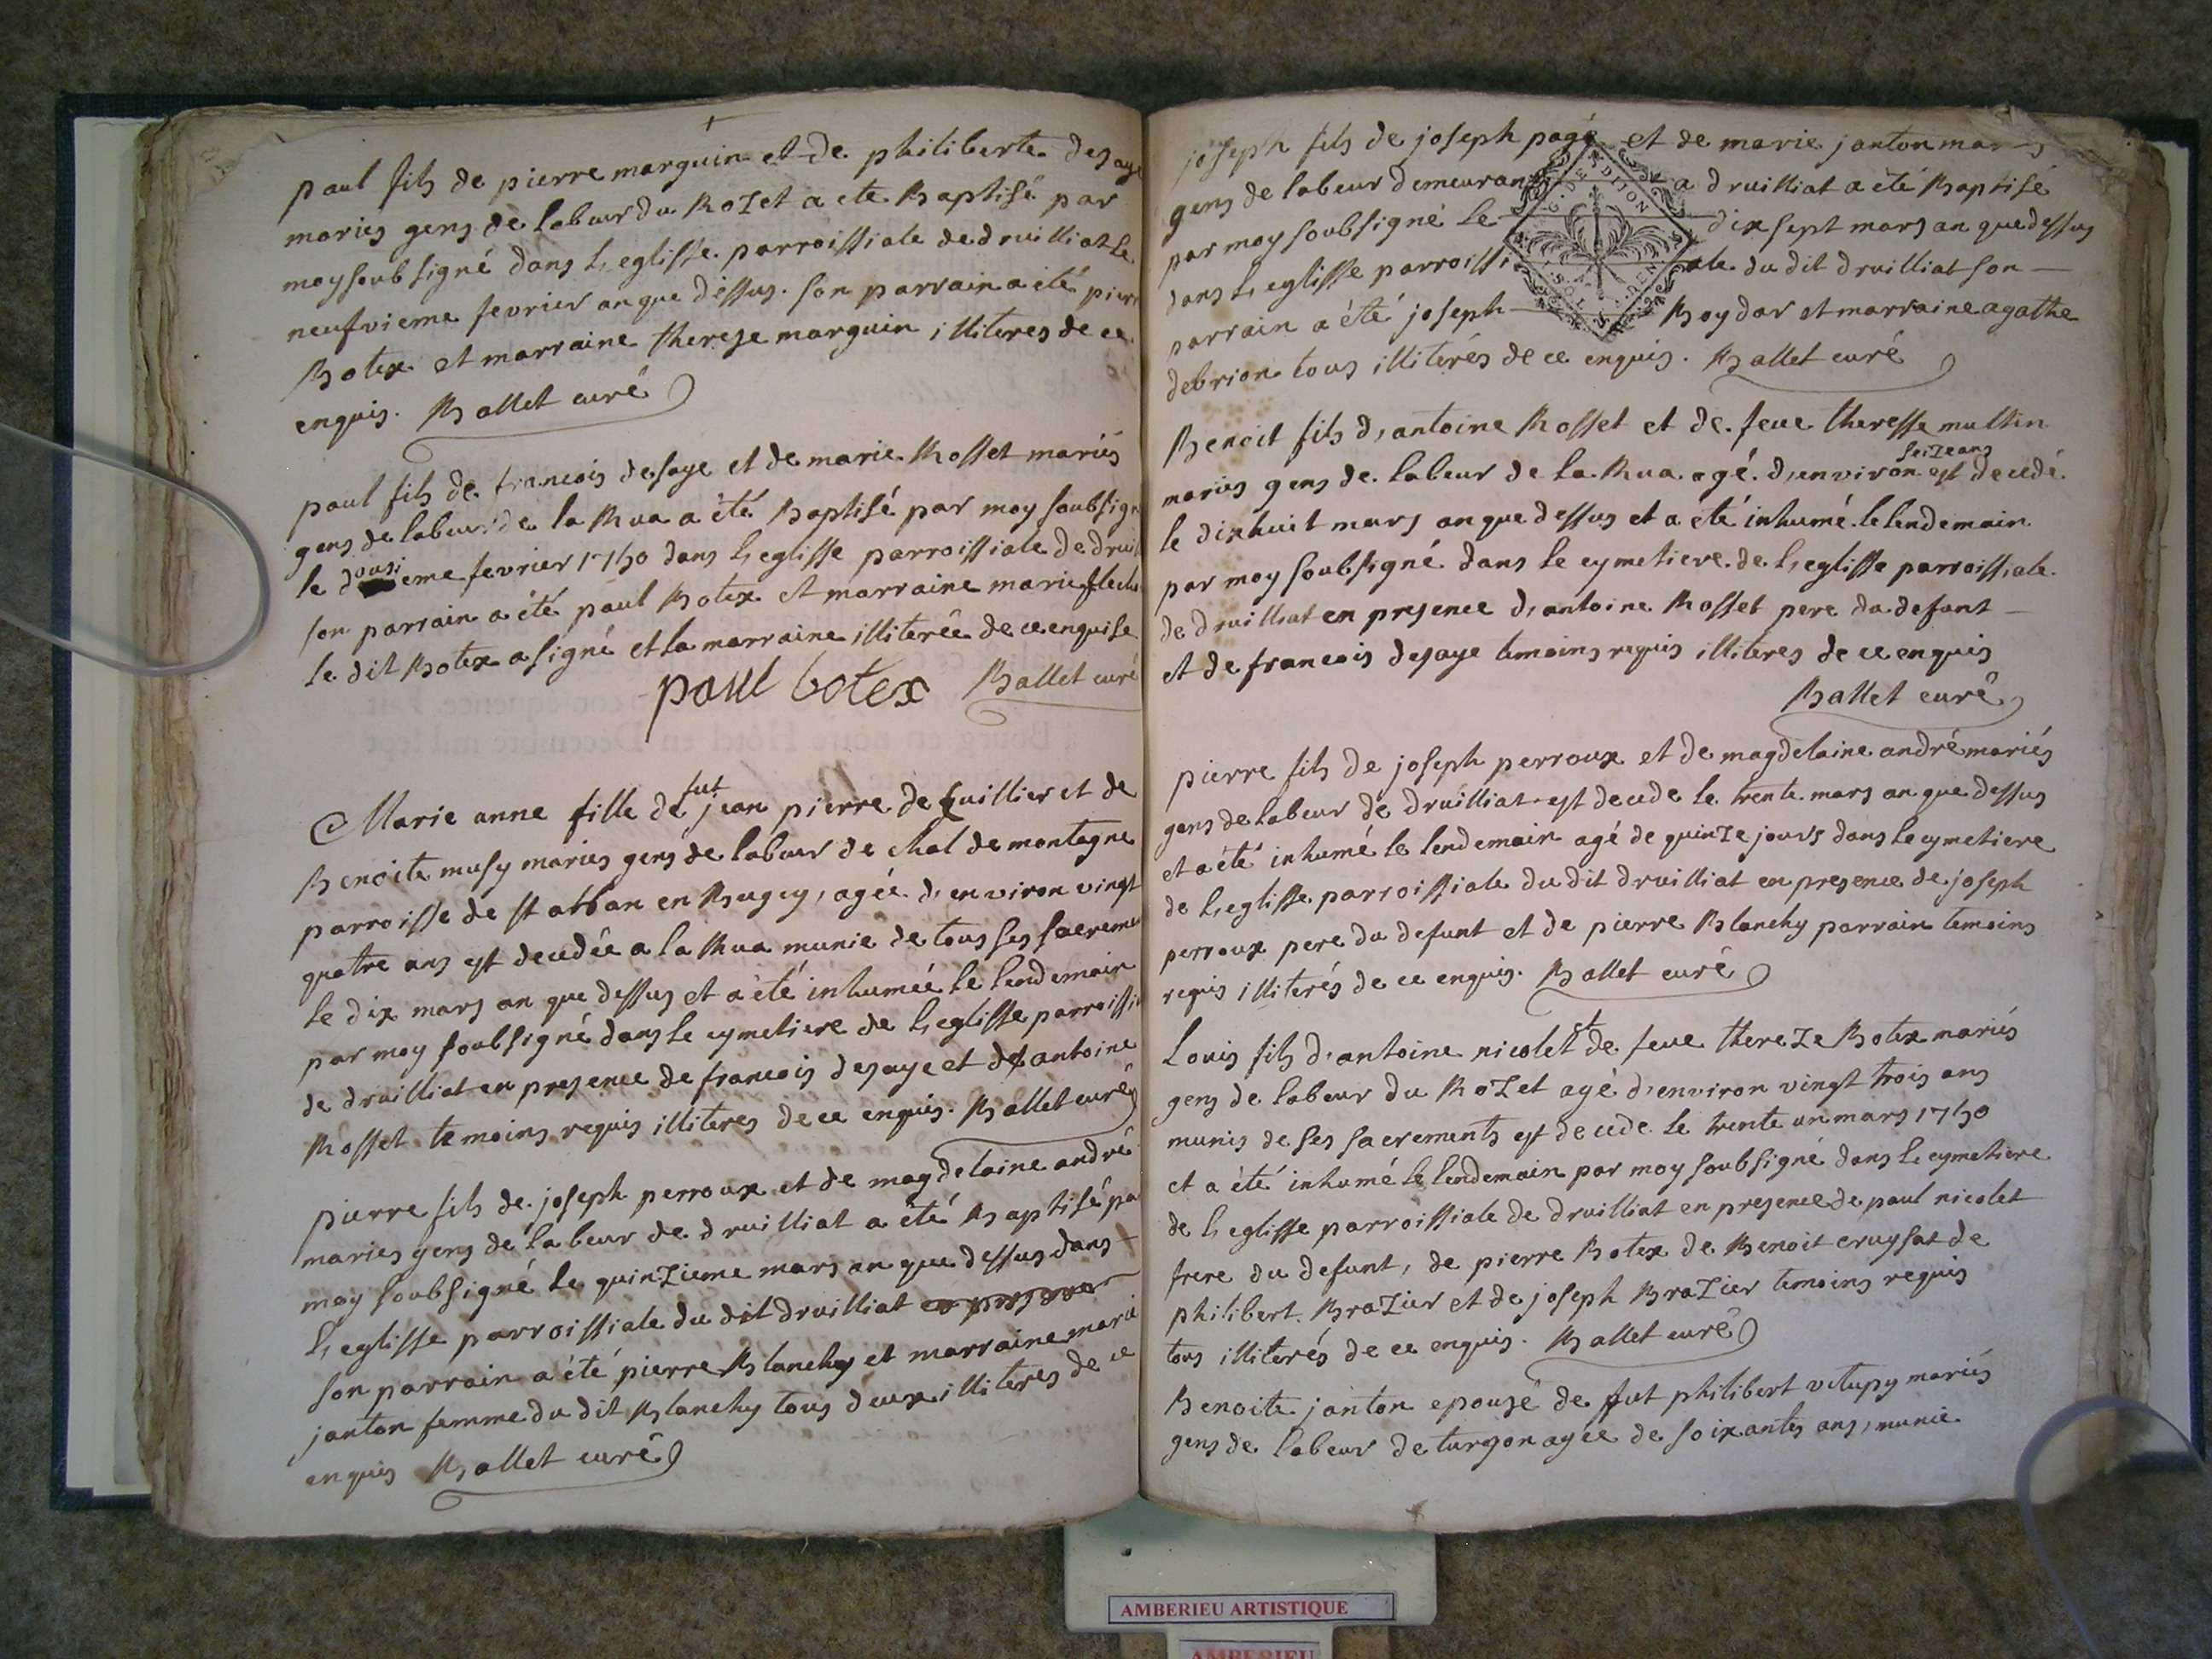 paul fils de pierre marguin et de philiberte desaye
mariés gens de labeur du Rozet a ete Baptisé par
moy soubsigné dans L'eglisse parroissiale de druilliat le
neufvieme fevrier an que dessus. son parrain a été pierre
Botex et marraine therese marguin illiteres de ce
enquis. Ballet curé
paul fils de francois desaye et de marie Rosset mariés
gens de labeur de la Rua a été Baptisé par moy soubsigné
le dousieme fevrier 1750 dans L'eglisse parroissiale de druil
son parrain a été paul Botex et marraine marie
le dit Botex a signé et la marraine illiterée de ce enquise
paul botex Ballet curé
Marie anne fille de fut jean pierre de Cuillier et de
Benoite musy mariés gens de labeur de chal de montagne
parroisse de st alban en Bugey, agée d'environ vingt
quatre ans est decedée a la Rua munie de tous ses sacrem
le dix mars an que dessus et a été inhumée le lendemain
par moy soubsigné dans le cymetiere de L'eglisse parroissi
de druilliat en presence de francois desaye et d'antoine
Rosset temoins requis illiteres de ce enquis. Ballet curé
pierre fils de joseph perroux et de magdelaine andré
mariés gens de labeur de druilliat a été Baptisé pa
moy soubsigné le quinzieme mars an que dessus dans
L'eglisse parroissiale du dit druilliat en presence
son parrain a été pierre Blanchy et marraine mari
janton femme du dit Blanchy tous deux illiteres de ce
enquis Ballet curé
joseph fils de joseph pagé et de marie janton mar
gens de labeur demeurant a druilliat a été Baptisé
par moy soubsigné le dix sept mars an que dessus
dans L'eglisse parroissiale du dit druilliat son
parrain a été joseph Boydar et marraine agathe
debrion tous illiterés de ce enquis. Ballet curé
G. DE DIJON
SOLS DEN
Benoit fils d'antoine Rosset et de feue theresse multin
seize ans
mariés gens de labeur de la Rua agé d'environ est decedé
le dixhuit mars an que dessus et a été inhumé le lendemain
par moy soubsigné dans le cymetiere de L'eglisse parroissiale
de druilliat en presence d'antoine Rosset pere du defunt
et de francois desaye temoins requis illiteres de ce enquis
Ballet curé
pierre fils de joseph perroux et de magdelaine andré mariés
gens de labeur de druilliat est decede le trente mars an que dessus
et a été inhumé le lendemain agé de quinze jours dans le cymetiere
de L'eglisse parroissiale du dit druilliat en presence de joseph
perroux pere du defunt et de pierre Blanchy parrain temoins
requis illiterés de ce enquis. Ballet curé
Louis fils d'antoine nicolet et de feue thereze Botex mariés
gens de labeur du Rozet agé d'environ vingt trois ans
munis de ses sacrements est decede le trente un mars 1750
et a été inhumé le lendemain par moy soubsigné dans le cymetiere
de L'eglisse parroissiale de druilliat en presence de paul nicolet
frere du defunt, de pierre Botex de Benoit cruysat de
philibert Brazier et de joseph Brazier temoins requis
tous illiterés de ce enquis. Ballet curé
Benoite janton epouse de fut philibert vitupy mariés
gens de labeur de turgon agée de soixantes ans, munie
AMBERIEU ARTISTIQUE
AMBERIEU